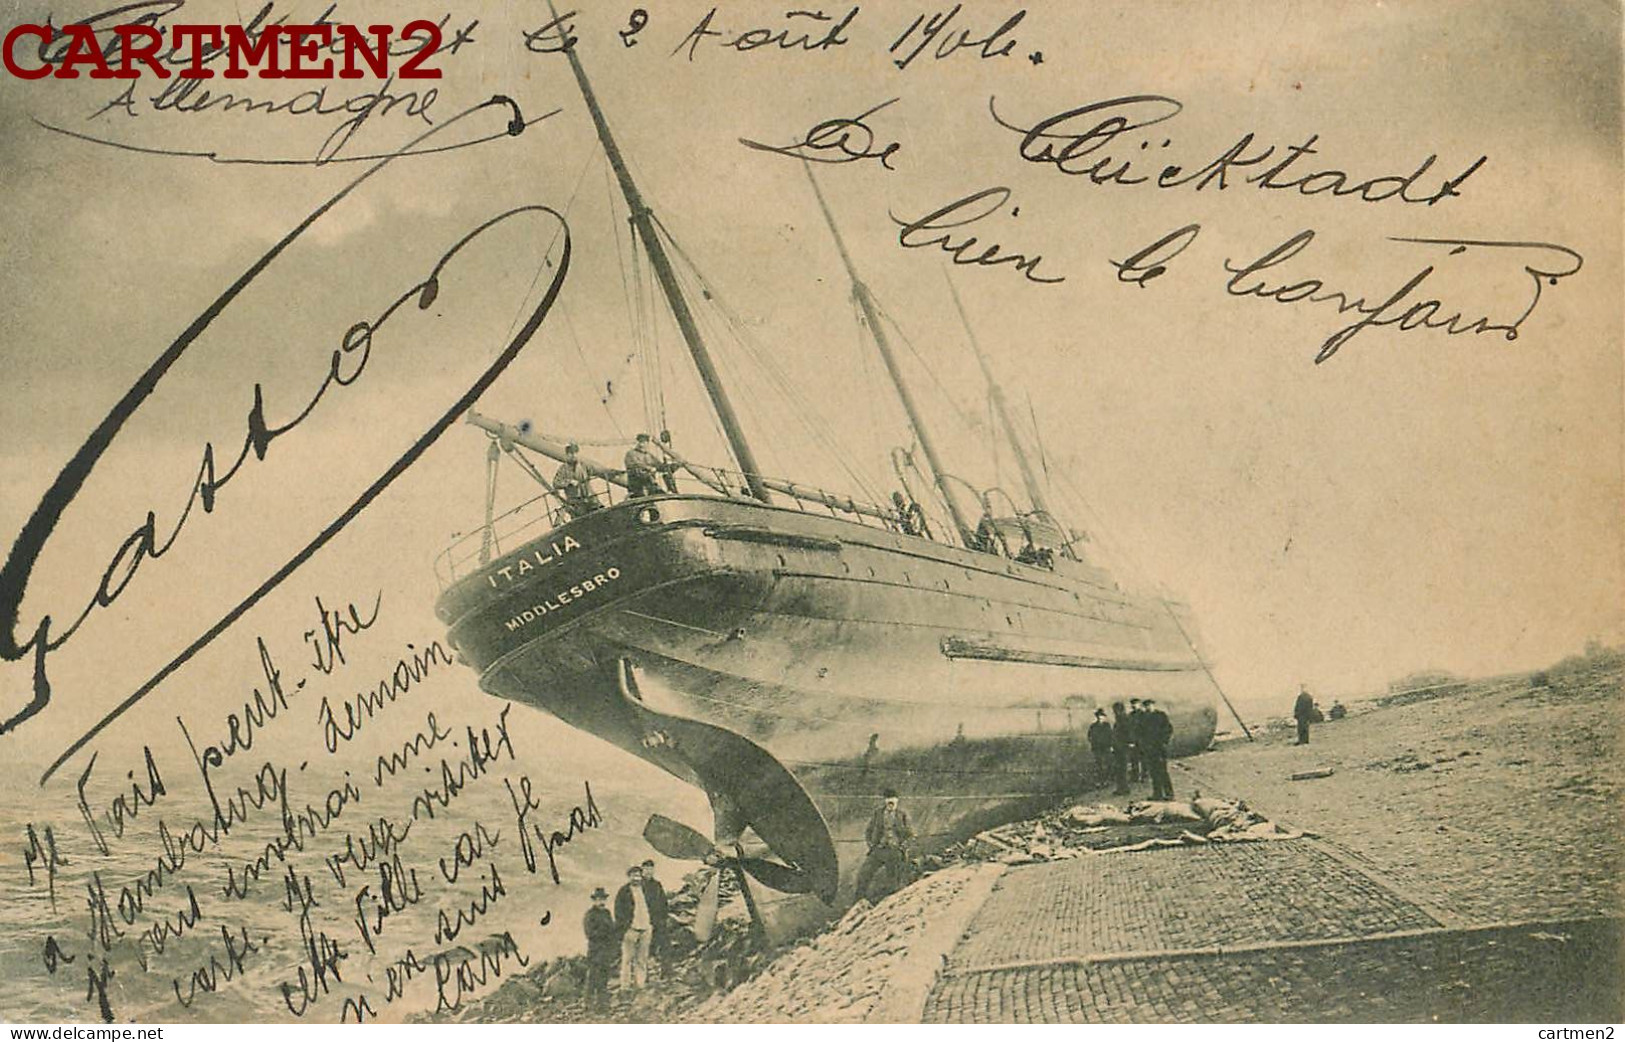 CARTMEN2
le 2 Août 1904.
Allemagne
De Glückstadt
bien le bonjour
Gaston
ITALIA
MIDDLESBRO
Je vais peut-être
a Hambourg. demain
je vous enverrai une
carte. Je veux visiter
cette ville car je
n'en suis pas
loin.
delcampe.net
cartmen2